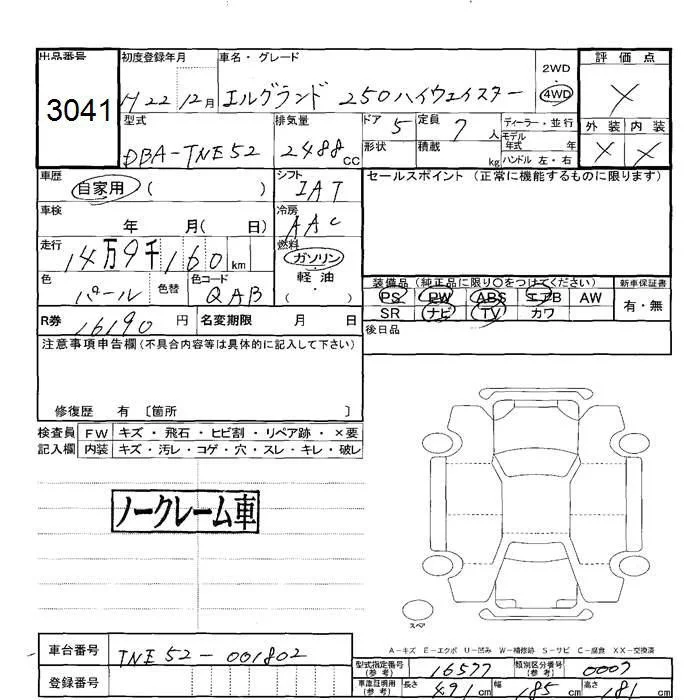 出品番号 初度登録年月 車名・グレード 2WD 評価点
3041 H22 12月 エルグランド 250ハイウェイスター 4WD ×
型式 排気量 ドア 5 定員 7人 ディーラー・並行 外装 内装
DBA-TNE52 2488cc 形状 積載 kg モデル年式 年 ハンドル 左・右 × ×
車歴 自家用 ( ) シフト IAT セールスポイント (正常に機能するものに限ります)
車検 年 月( 日) 冷房 AAC
走行 14万9千160km 燃料 ガソリン
色 パール 色替 色コード QAB 軽油
・
装備品 (純正品に限り○をつけてください) 新車保証書
PS PW ABS エアB AW 有・無
R券 16190円 名変期限 月 日 SR ナビ TV カワ
注意事項申告欄(不具合内容等は具体的に記入して下さい) 後日品
修復歴 有 〔箇所 〕
検査員 FW キズ・飛石・ヒビ割・リペア跡・×要
記入欄 内装 キズ・汚レ・コゲ・穴・スレ・キレ・破レ
ノークレーム車
スペア
A-キズ E-エクボ U-凹み W-補修跡 S-サビ C-腐食 XX-交換済
車台番号 TNE52-001802
型式指定番号(参考) 16577 類別区分番号(参考) 0007
登録番号 車庫証明用(参考) 長さ 491cm 幅 185cm 高さ 181cm